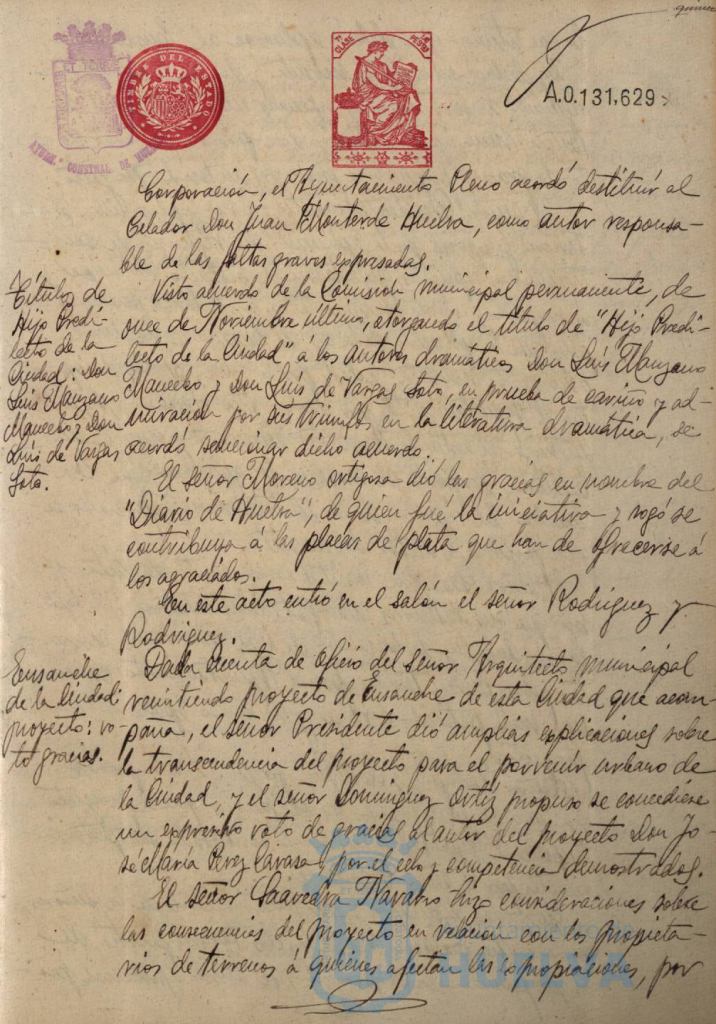 TIMBRE DEL ESTADO
7ª CLASE
A.0.131,629
Corporación, el Ayuntamiento Pleno acordó destituir al
Celador Don Juan Monterde Huelva, como autor responsa-
ble de las faltas graves expresadas.
Títulos de
Hijo Predi-
lecto de la
Ciudad: Don
Luis Manzano
Mancebo y Don
Luis de Vargas
Soto.
Visto acuerdo de la Comisión municipal permanente, de
once de Noviembre último, otorgando el título de "Hijo Predi-
lecto de la Ciudad" á los autores dramáticos Don Luis Manzano
Mancebo y Don Luis de Vargas Soto, en prueba de cariño y ad-
miración por sus triunfos en la literatura dramática, se
acordó sancionar dicho acuerdo.
El señor Moreno Ortigosa dió las gracias en nombre del
"Diario de Huelva", de quien fué la iniciativa y rogó se
contribuya á las placas de plata que han de ofrecerse á
los agraciados.
En este acto entró en el salón el señor Rodríguez y
Rodríguez.
Ensanche
de la Ciudad:
proyecto: vo-
to gracias.
Dada cuenta de oficio del señor Arquitecto municipal
remitiendo proyecto de Ensanche de esta Ciudad que acom-
paña, el señor Presidente dió amplias explicaciones sobre
la transcendencia del proyecto para el porvenir urbano de
la Ciudad, y el señor Domínguez Ortiz propuso se concediese
un expresivo voto de gracias al autor del proyecto Don Jo-
sé María Perez Carasa, por el celo y competencia demostrados.
El señor Saavedra Navarro hizo consideraciones sobre
las consecuencias del proyecto en relación con los propieta-
rios de terrenos á quienes afectan las expropiaciones, por
HUELVA